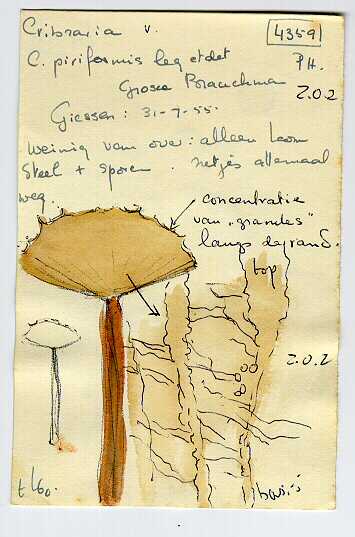 Cribraria v. 4359
C. piriformis leg et det PH.
Grosse Brauckman Z.O.2
Giessen : 31-7-55.
Weinig van over : alleen
Steel + sporen . netjes allemaal
weg.
concentratie
van „grandes"
langs de rand.
top
Z.O.2
basis
t 160.